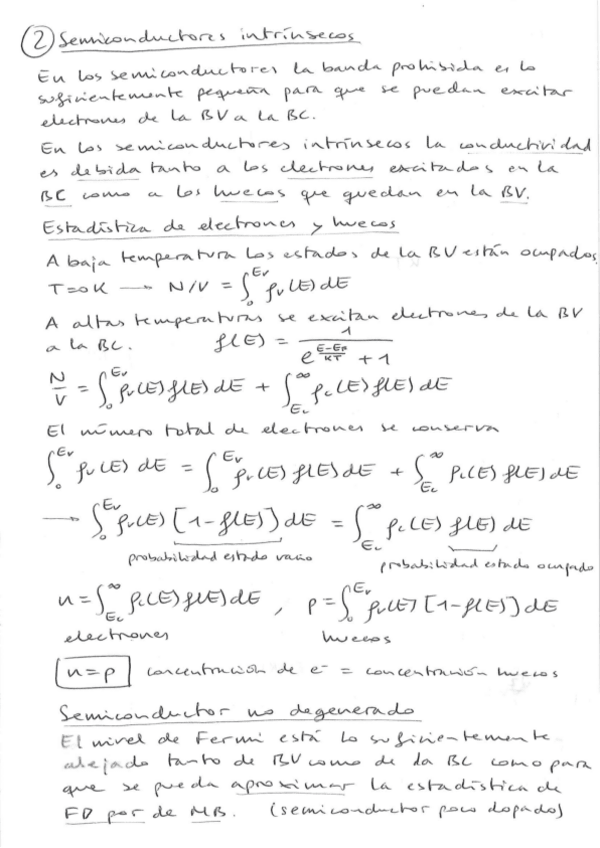 ② Semiconductores intrínsecos
En los semiconductores la banda prohibida es lo
suficientemente pequeña para que se puedan excitar
electrones de la BV a la BC.
En los semiconductores intrínsecos la conductividad
es debida tanto a los electrones excitados en la
BC como a los huecos que quedan en la BV.
Estadística de electrones y huecos
A baja temperatura los estados de la BV están ocupados
T=0K → N/V = ∫₀^{Ev} ρv(E)dE
A altas temperaturas se excitan electrones de la BV
a la BC. f(E) = 1 / (e^{(E-EF)/KT} + 1)
N/V = ∫₀^{Ev} ρv(E)f(E)dE + ∫_{Ec}^∞ ρc(E)f(E)dE
El número total de electrones se conserva
∫₀^{Ev} ρv(E) dE = ∫₀^{Ev} ρv(E) f(E)dE + ∫_{Ec}^∞ ρc(E) f(E)dE
→ ∫₀^{Ev} ρv(E) [1-f(E)] dE = ∫_{Ec}^∞ ρc(E) f(E) dE
probabilidad estado vacío probabilidad estado ocupado
n = ∫_{Ec}^∞ ρc(E)f(E)dE , p = ∫₀^{Ev} ρv(E)[1-f(E)]dE
electrones huecos
n=p concentración de e⁻ = concentración huecos
Semiconductor no degenerado
El nivel de Fermi está lo suficientemente
alejado tanto de BV como de da BC como para
que se pueda aproximar la estadística de
FD por de MB. (semiconductor poco dopado)